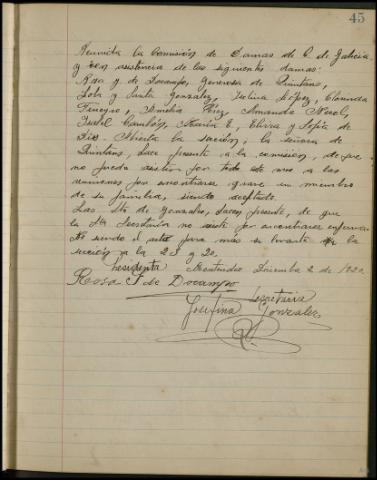 45
Reunida la Comisión de Damas del C. de Galicia
y con asistencia de las siguientes damas:
Rosa y de Docampo, Generosa de Quintans,
Lola y Anita Gonzalez, Isolina López,
Amelia Pérez, Amanda
Isabel María E, Elvira y Sofía de
Abierta la sesión, la señora de
Quintans, hace presente a la comisión, de que
no puede asistir por todo este mes a las
reuniones por encontrarse grave un miembro
de su familia, siendo aceptado.
Las de Gonzalez, hacen presente, de que
la Secretaria no asiste por encontrarse enferma
No siendo el acto para más se levanta la
sesión a la 23 y 20.
Presidenta Montevideo Diciembre 2 de 1920
Rosa de Docampo Secretaria
Josefina Gonzalez